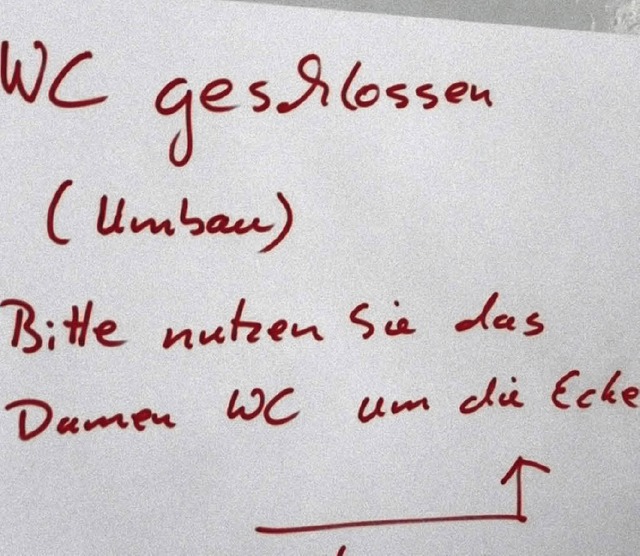 WC geschlossen
(Umbau)
Bitte nutzen Sie das
Damen WC um die Ecke